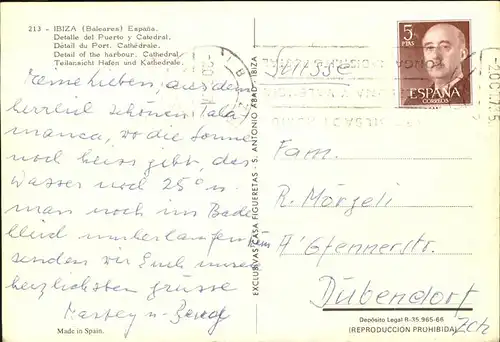 213 - IBIZA (Baleares) España.
Detalle del Puerto y Catedral.
Détail du Port. Cathédrale.
Detail of the harbour. Cathedral.
Teilansicht Hafen und Kathedrale.
aus dem
schönen Tala-
manca, wo die Sonne
noch heiss gibt, das
Wasser noch 25° u.
man noch im Bade-
kleid umherlaufen kann
senden wir Euch unsere
herzlichsten Grüsse
Made in Spain.
EXCLUSIVAS CASA FIGUERETAS - S. ANTONIO ABAD - IBIZA
Suisse
5
PTAS
ESPAÑA
CORREOS
Fam.
R. Mörgeli
Dübendorf
Zch
Depósito Legal B-35.965-66
(REPRODUCCION PROHIBIDA)